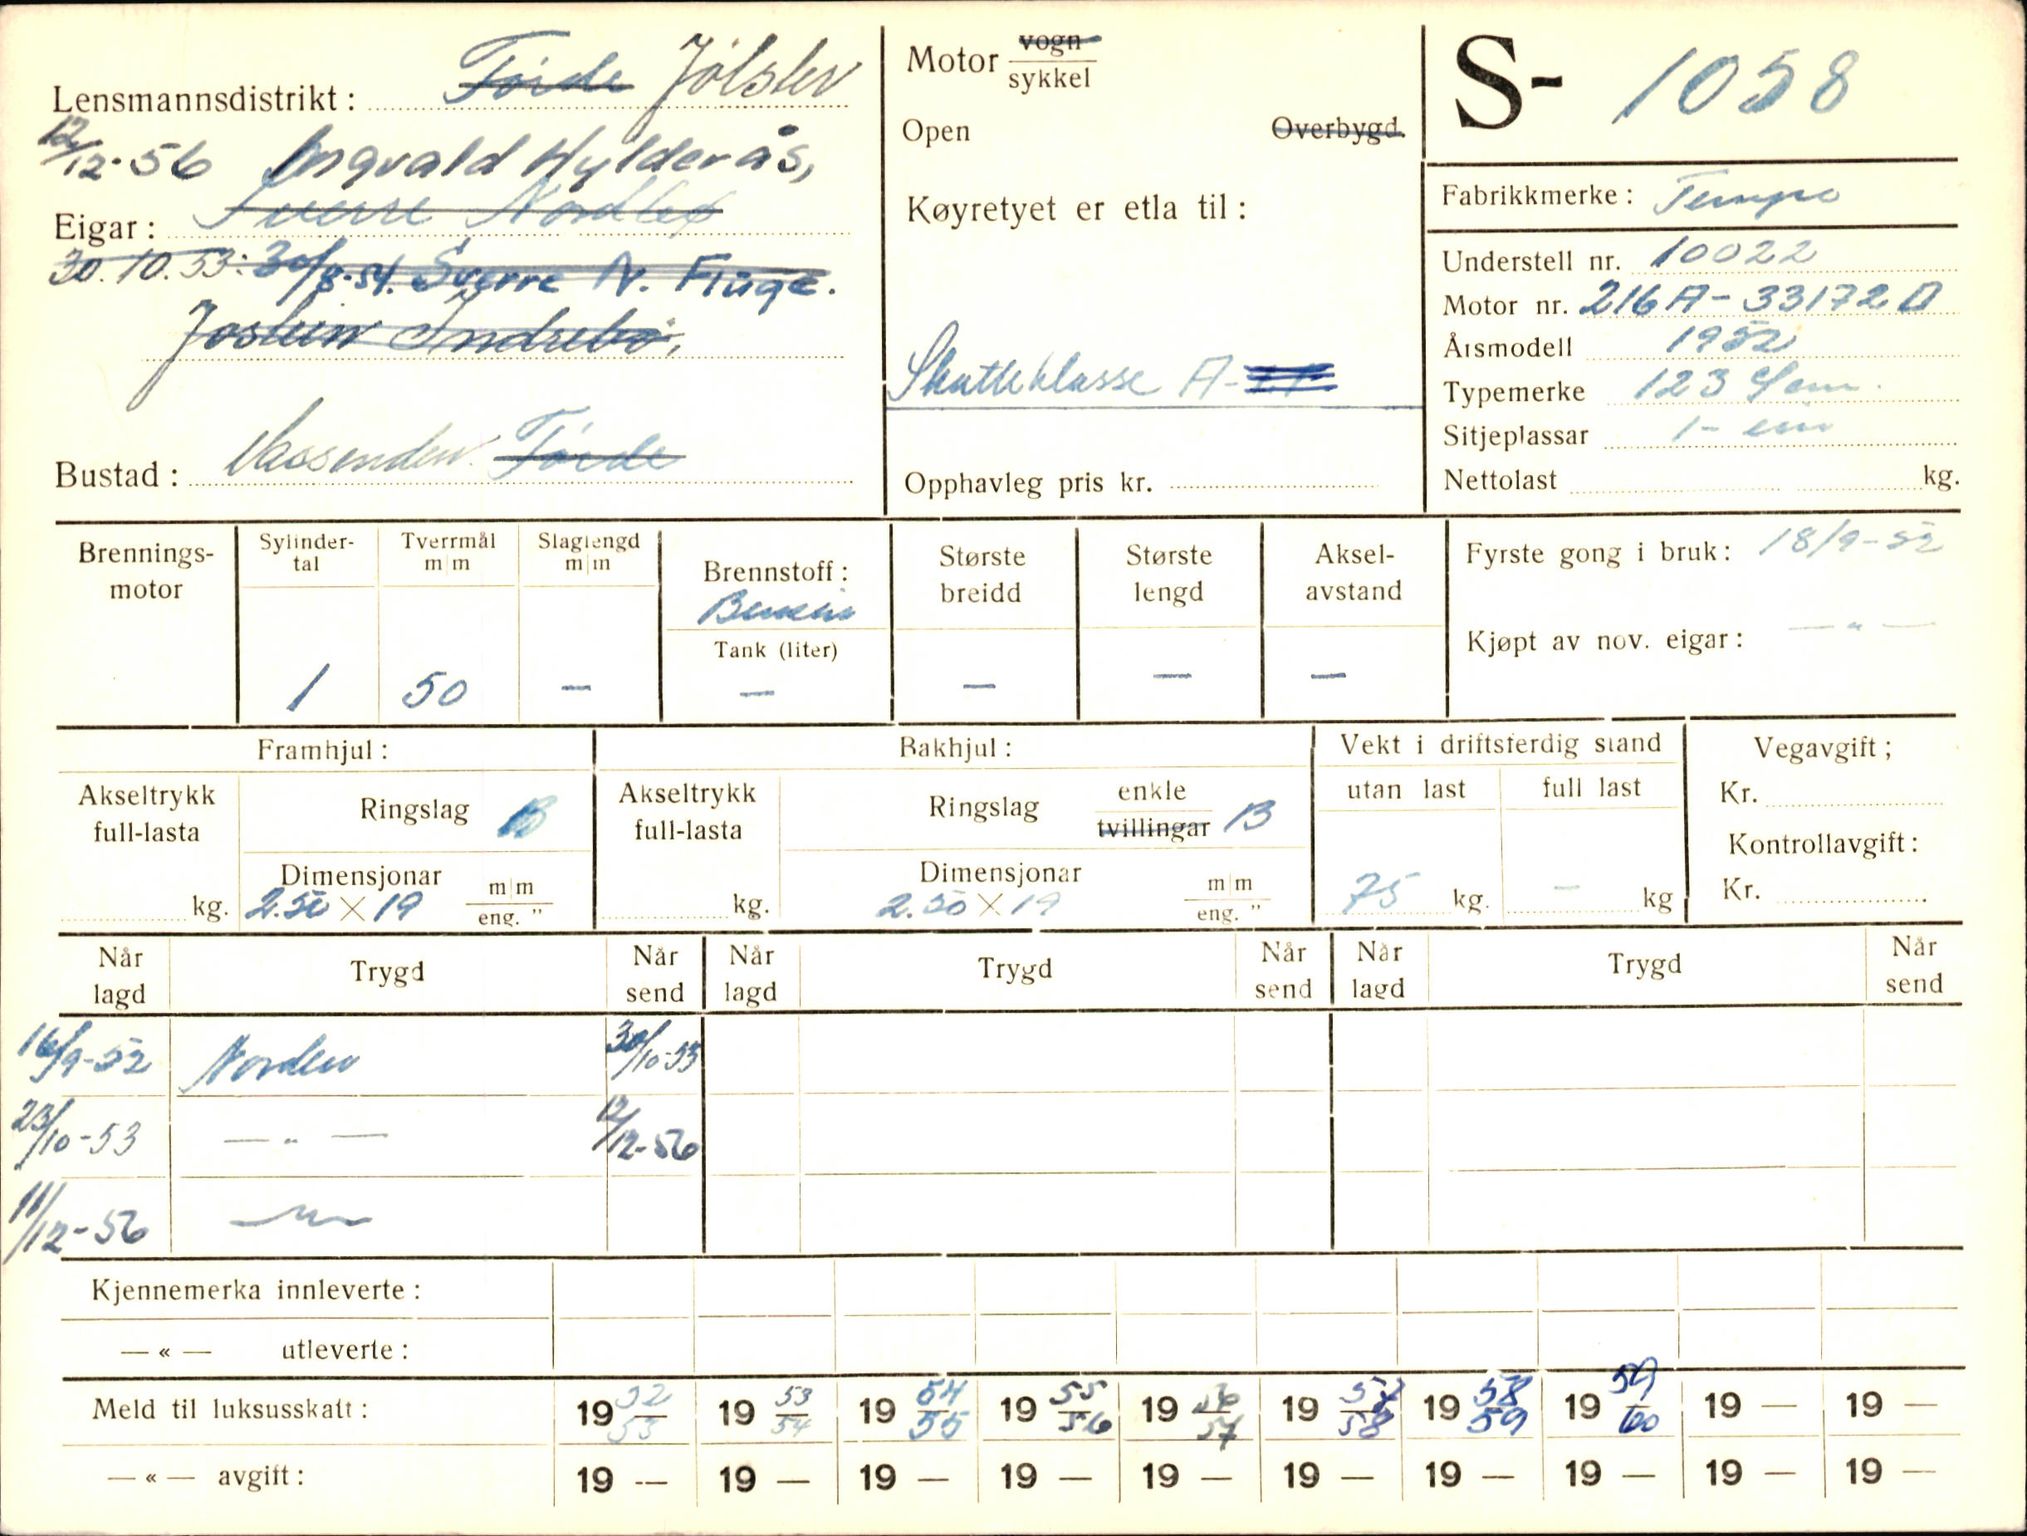 Lensmannsdistrikt: Førde Jølster
12/12-56 Ingvald Hylderås,
Eigar: Sverre Nordbø
30.10.53: 30/8-54. Sverre N. Fluge.
Jostein Indrebø,
Bustad: Vassenden. Førde
Motor vogn
sykkel
Open Overbygd.
Køyretyet er etla til:
Skatteklasse A-
Opphavleg pris kr.
S- 1058
Fabrikkmerke: Tempo
Understell nr. 10022
Motor nr. 216 A - 33172 D
Årsmodell 1952
Typemerke 123 c/cm.
Sitjeplassar 1 - ein
Nettolast kg.
Brennings-
motor
Sylinder-
tal
1
Tverrmål
m|m
50
Slaglengd
m|m
—
Brennstoff:
Bensin
Tank (liter)
—
Største
breidd
—
Største
lengd
—
Aksel-
avstand
—
Fyrste gong i bruk: 18/9-52
Kjøpt av nov. eigar: — " —
Framhjul:
Akseltrykk
full-lasta
kg.
Ringslag B
Dimensjonar
2.50 × 19
m|m
eng. "
Bakhjul:
Akseltrykk
full-lasta
kg.
Ringslag enkle
tvillingar B
Dimensjonar
2.50 × 19
m|m
eng. "
Vekt i driftsferdig stand
utan last
75 kg.
full last
— kg
Vegavgift;
Kr.
Kontrollavgift:
Kr.
Når
lagd
Trygd
Når
send
Når
lagd
Trygd
Når
send
Når
lagd
Trygd
Når
send
16/9-52 Norden 30/10-53
23/10-53 — " — 12/12-56
11/12-56 — " —
Kjennemerka innleverte:
— « — utleverte:
Meld til luksusskatt: 19 52/53 19 53/54 19 54/55 19 55/56 19 56/57 19 57/58 19 58/59 19 59/60 19 — 19 —
— « — avgift: 19 — 19 — 19 — 19 — 19 — 19 — 19 — 19 — 19 — 19 —